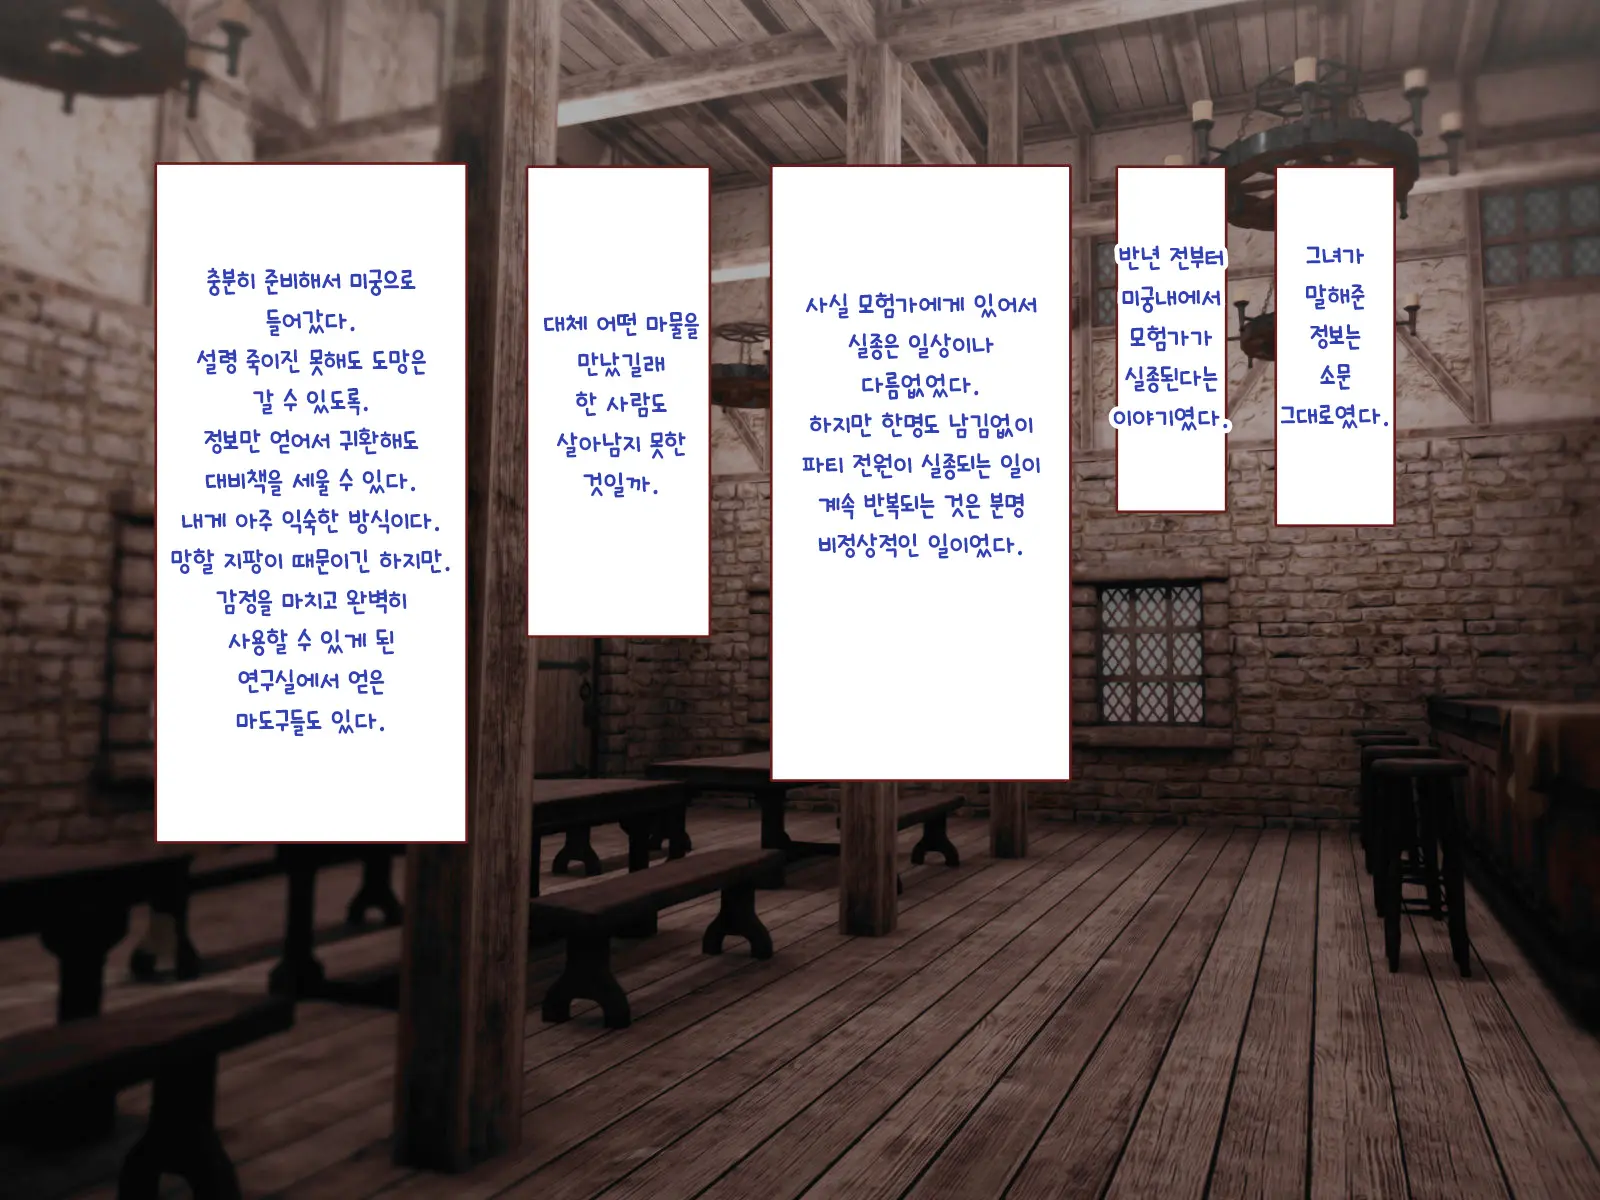 그녀가
말해준
정보는
소문
그대로였다.
반년 전부터
미궁내에서
모험가가
실종된다는
이야기였다.
사실 모험가에게 있어서
실종은 일상이나
다름없었다.
하지만 한명도 남김없이
파티 전원이 실종되는 일이
계속 반복되는 것은 분명
비정상적인 일이었다.
대체 어떤 마물을
만났길래
한 사람도
살아남지 못한
것일까.
충분히 준비해서 미궁으로
들어갔다.
설령 죽이진 못해도 도망은
갈 수 있도록.
정보만 얻어서 귀환해도
대비책을 세울 수 있다.
내게 아주 익숙한 방식이다.
망할 지팡이 때문이긴 하지만.
감정을 마치고 완벽히
사용할 수 있게 된
연구실에서 얻은
마도구들도 있다.